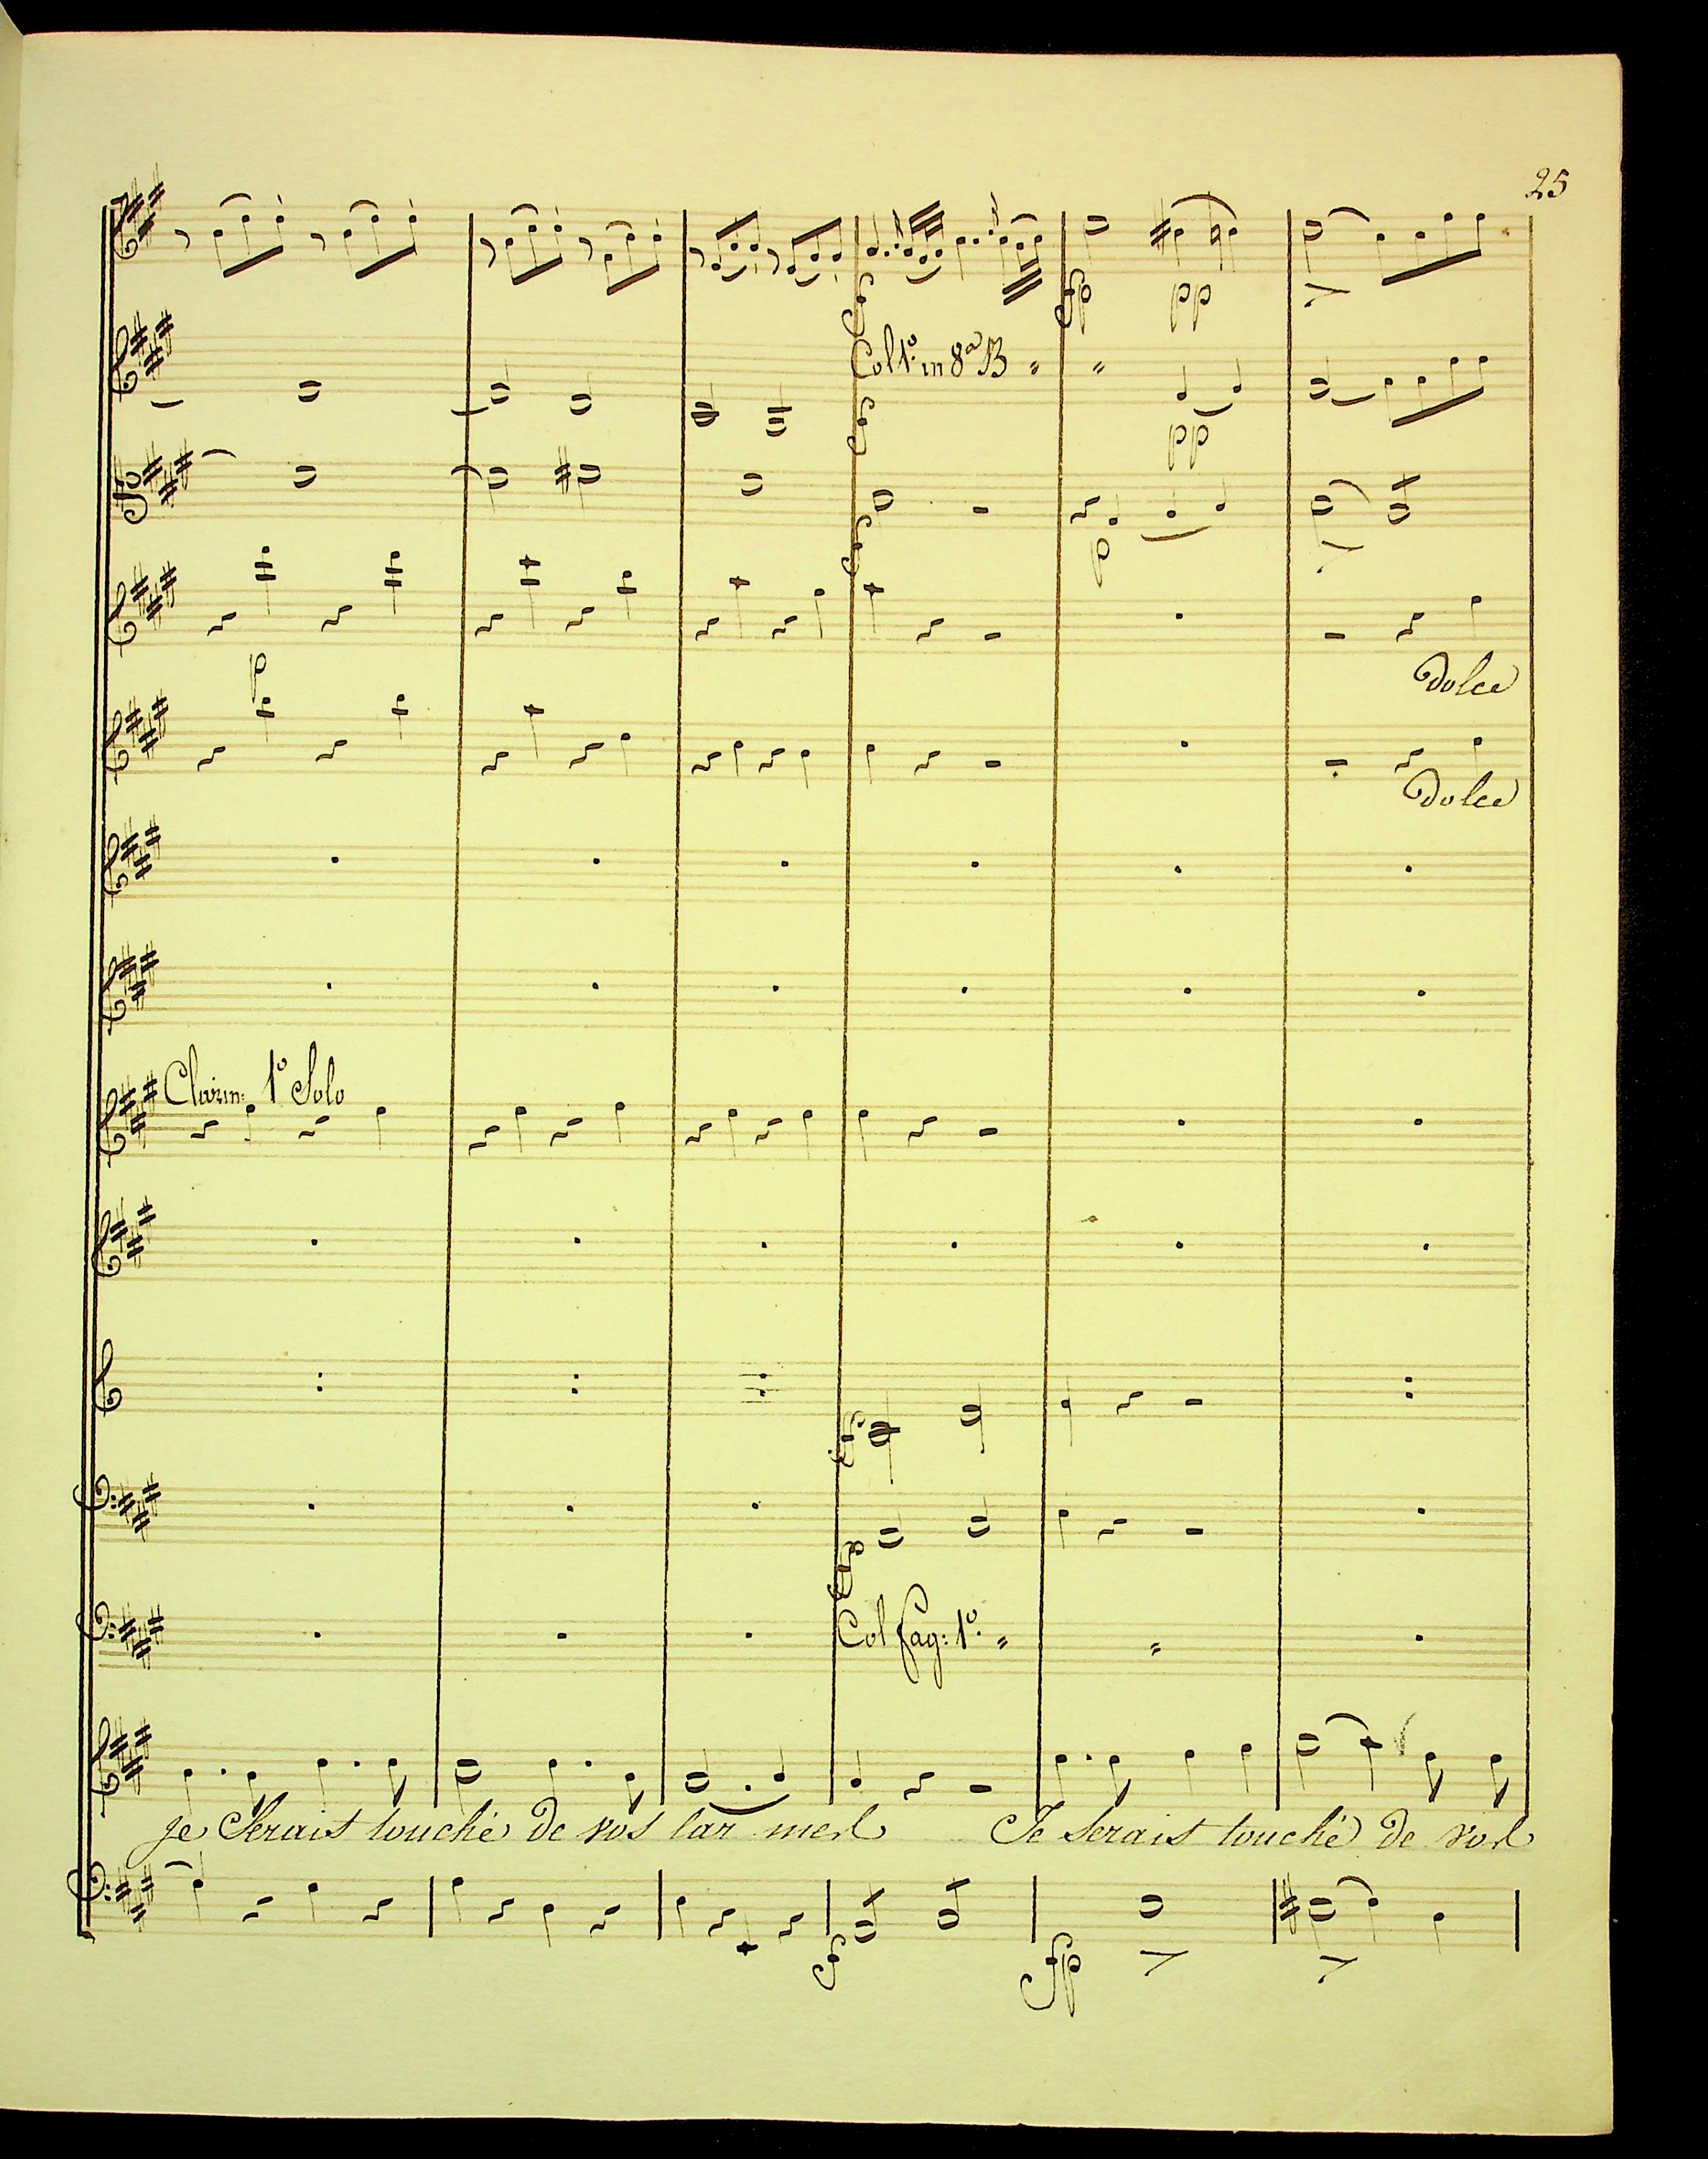 25
fp pp
Col 1º in 8ª B „ „
f
pp
f
p
f
p
dolce
dolce
Clarin: 1º Solo
f
Col fag: 1º. „ „
je Serais touché de vos lar mes Je serais touché de vos
f fp